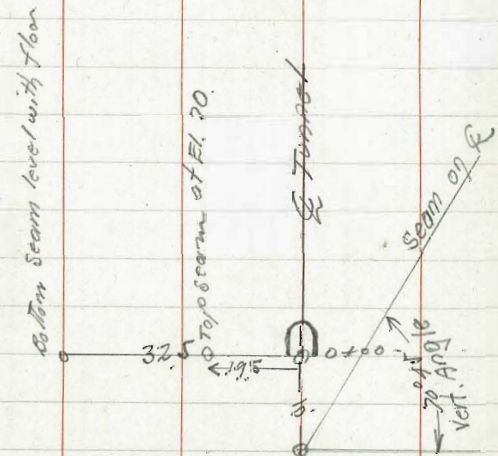 Bottom Seam level with floor
Top seam at El. 70.
℄ Tunnel
Seam on ℄
32.5
19.5
0+00
Vert. Angle